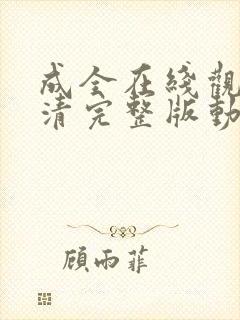 成全在綫觀
清完整版動
顧雨菲